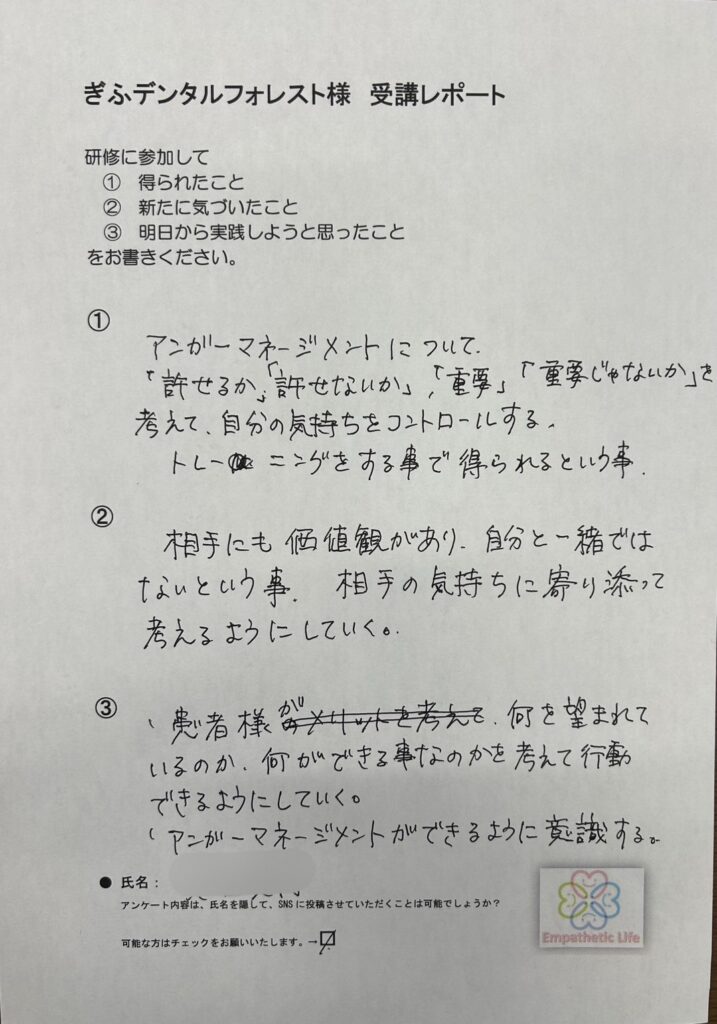 ぎふデンタルフォレスト様 受講レポート
研修に参加して
① 得られたこと
② 新たに気づいたこと
③ 明日から実践しようと思ったこと
をお書きください。
①
アンガーマネージメントについて.
「許せるか」「許せないか」,「重要」「重要じゃないか」を
考えて、自分の気持ちをコントロールする。
トレーニングをする事で得られるという事.
②
相手にも価値観があり、自分と一緒では
ないという事. 相手の気持ちに寄り添って
考えるようにしていく。
③
、患者様が、何を望まれて
いるのか、何ができる事なのかを考えて行動
できるようにしていく。
、アンガーマネージメントができるように意識する。
● 氏名:
アンケート内容は、氏名を隠して、SNSに投稿させていただくことは可能でしょうか?
可能な方はチェックをお願いいたします。→☑
Empathetic Life